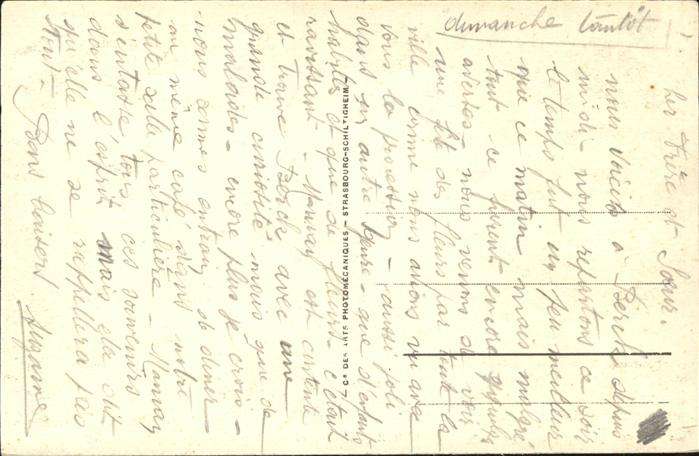 dimanche tantôt
Frère et Sœur.
nous voici à Berck depuis
midi - nous repartons ce soir
le temps fait un peu meilleur
que ce matin mais malgré
tout ce
averses - nous venons de voir
une fête des fleurs par toute la
ville comme nous avions vu avec
vous la procession - aussi joli
dans un autre genre - que d'enfants
habillés et que de fleurs - c'était
ravissant - Maman est contente
et trouve Berck avec une
grande curiosité - mais que de
malades - encore plus je crois -
nous sommes entrain de dîner
au même café dans notre
petite salle particulière - Maman
tous ces souvenirs
dans l'esprit mais elle dit
qu'elle ne se rappellera pas
tout - Bons baisers
Suzanne
Cie DES ARTS PHOTOMÉCANIQUES - STRASBOURG-SCHILTIGHEIM